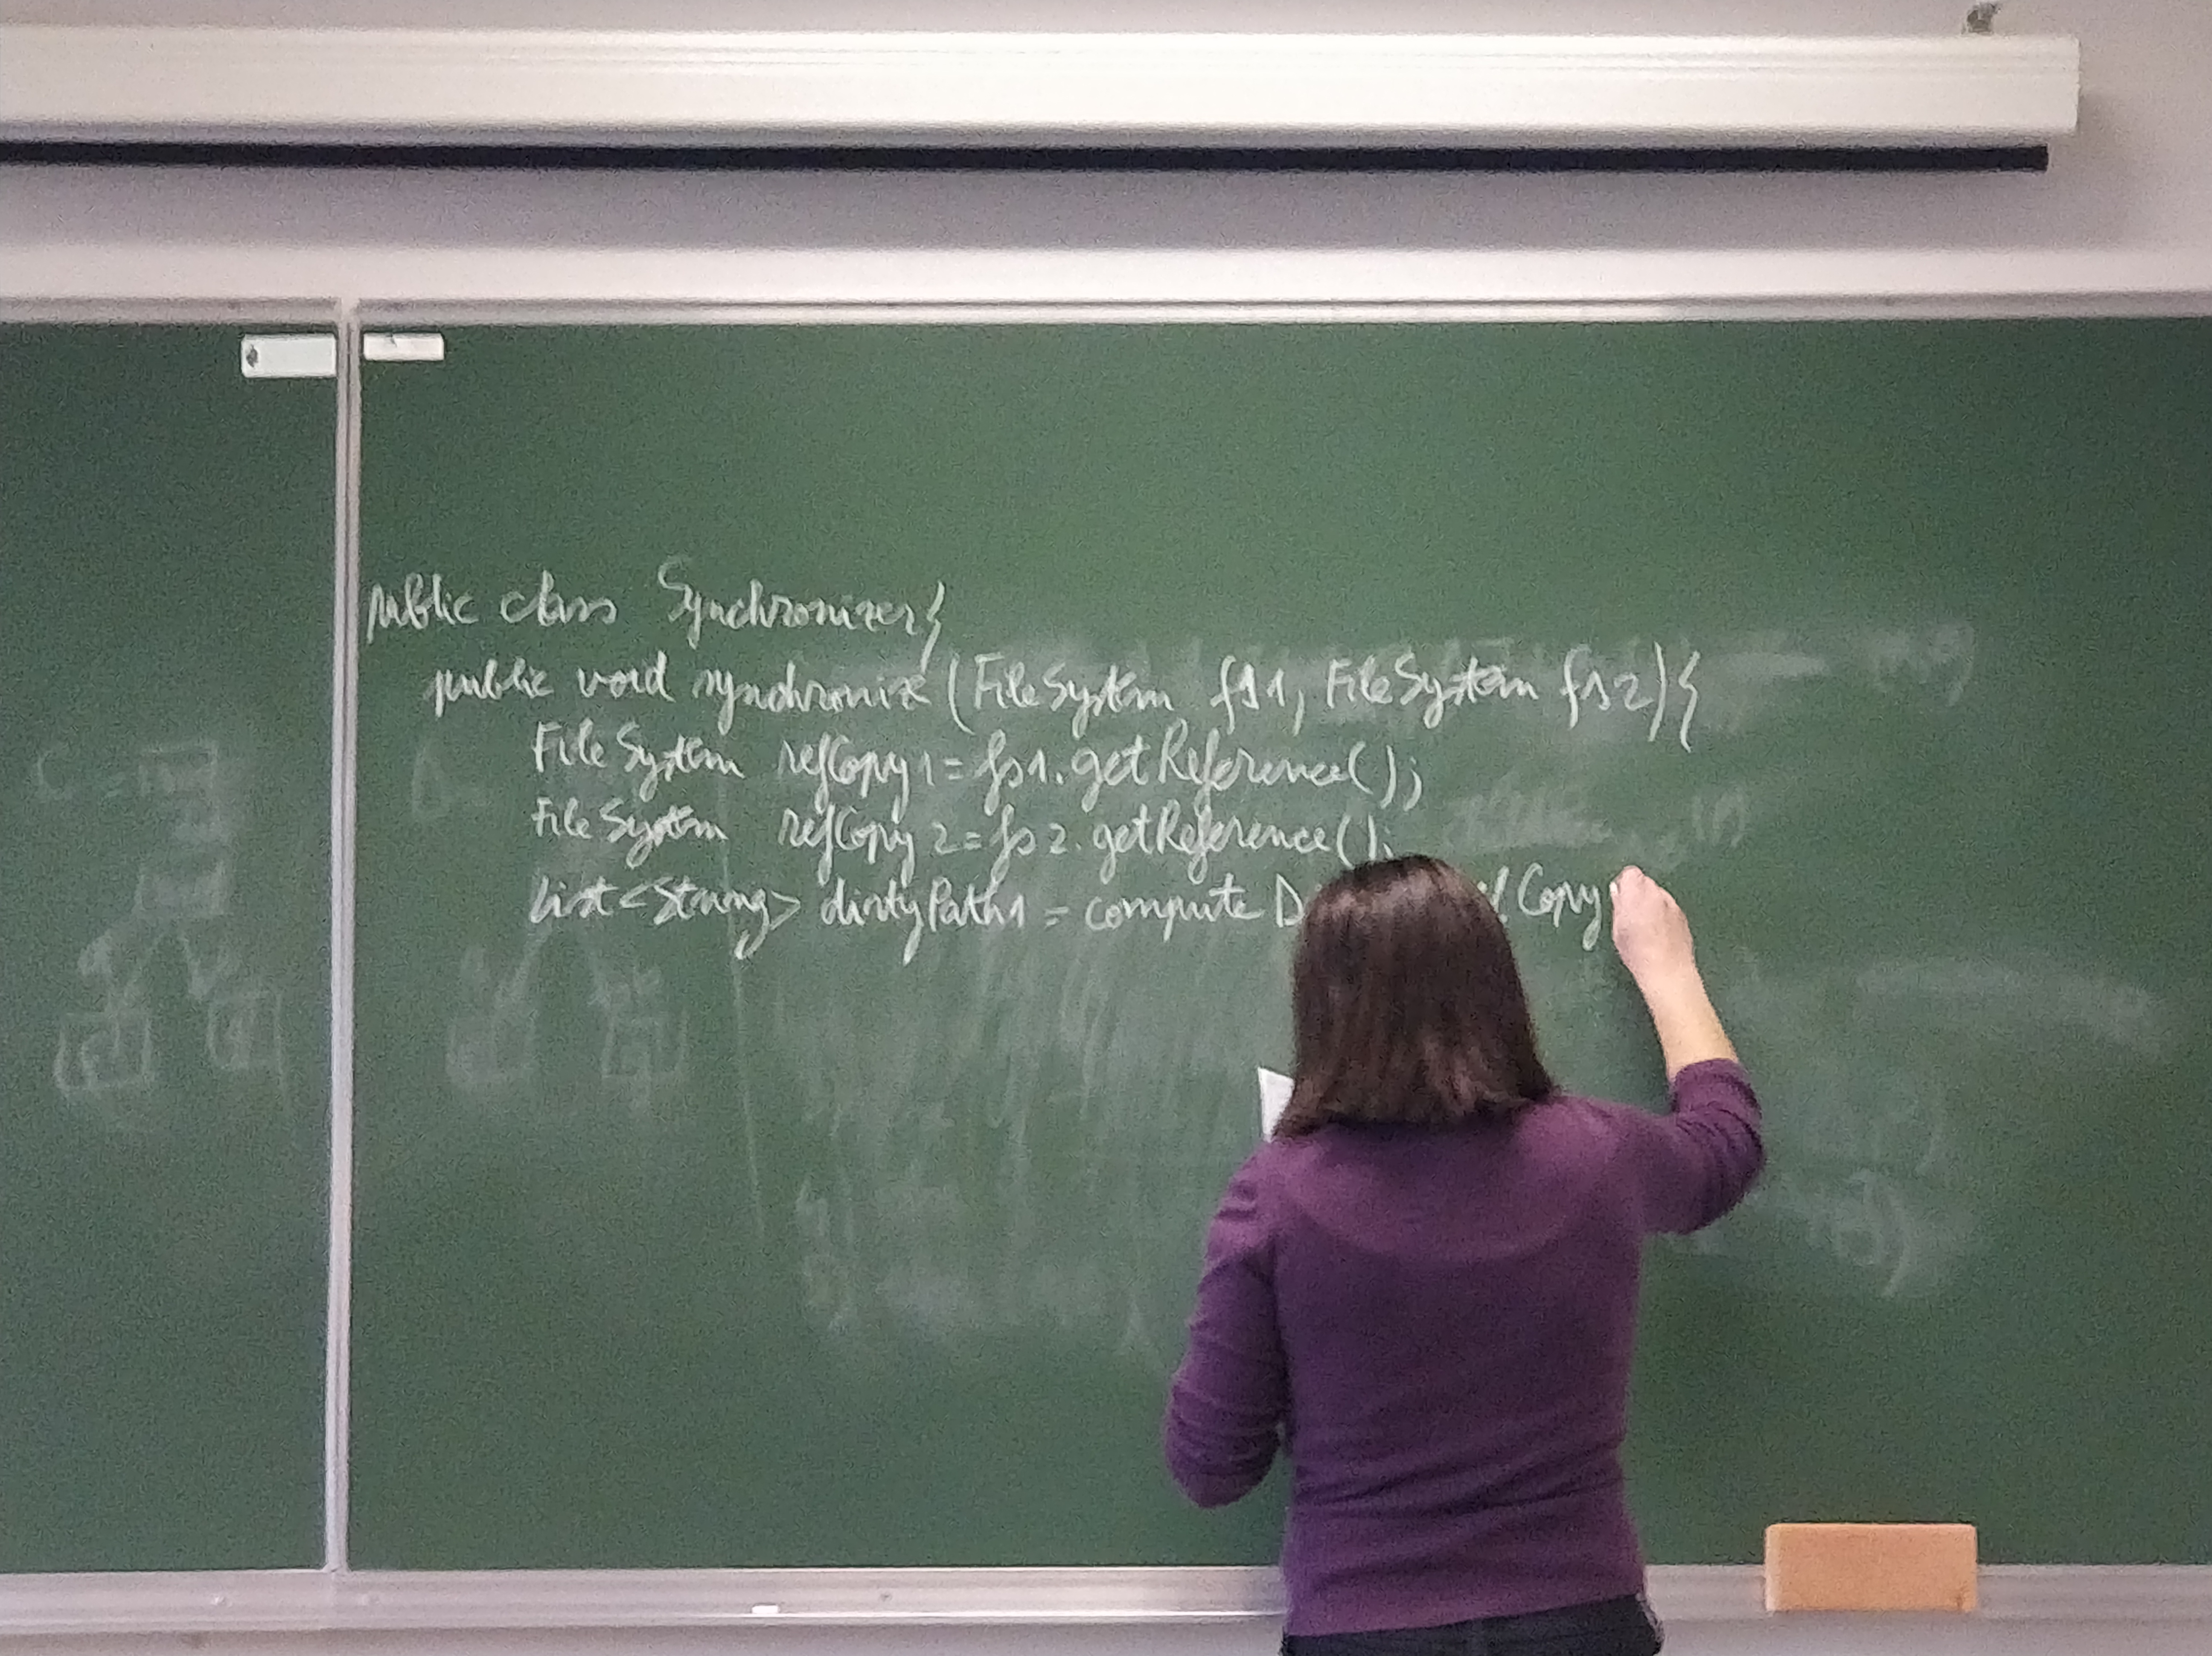 public class Synchronizer{
public void synchronize (FileSystem fs1, FileSystem fs2){
FileSystem refCopy1 = fs1.getReference();
FileSystem refCopy2 = fs2.getReference();
List<String> dirtyPath1 = compute D Copy